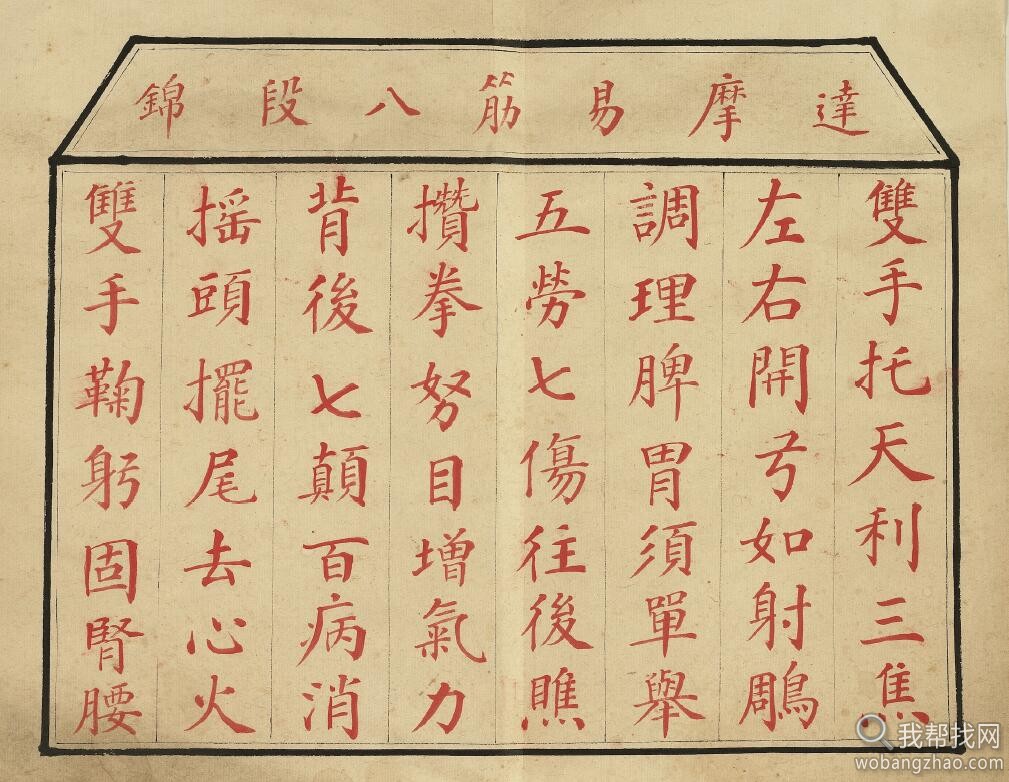 達摩易筋八段錦
雙手托天利三焦
左右開弓如射鵰
調理脾胃須單舉
五勞七傷往後瞧
攢拳努目增氣力
背後七顛百病消
搖頭擺尾去心火
雙手鞠躬固腎腰
我帮找网
wobangzhao.com